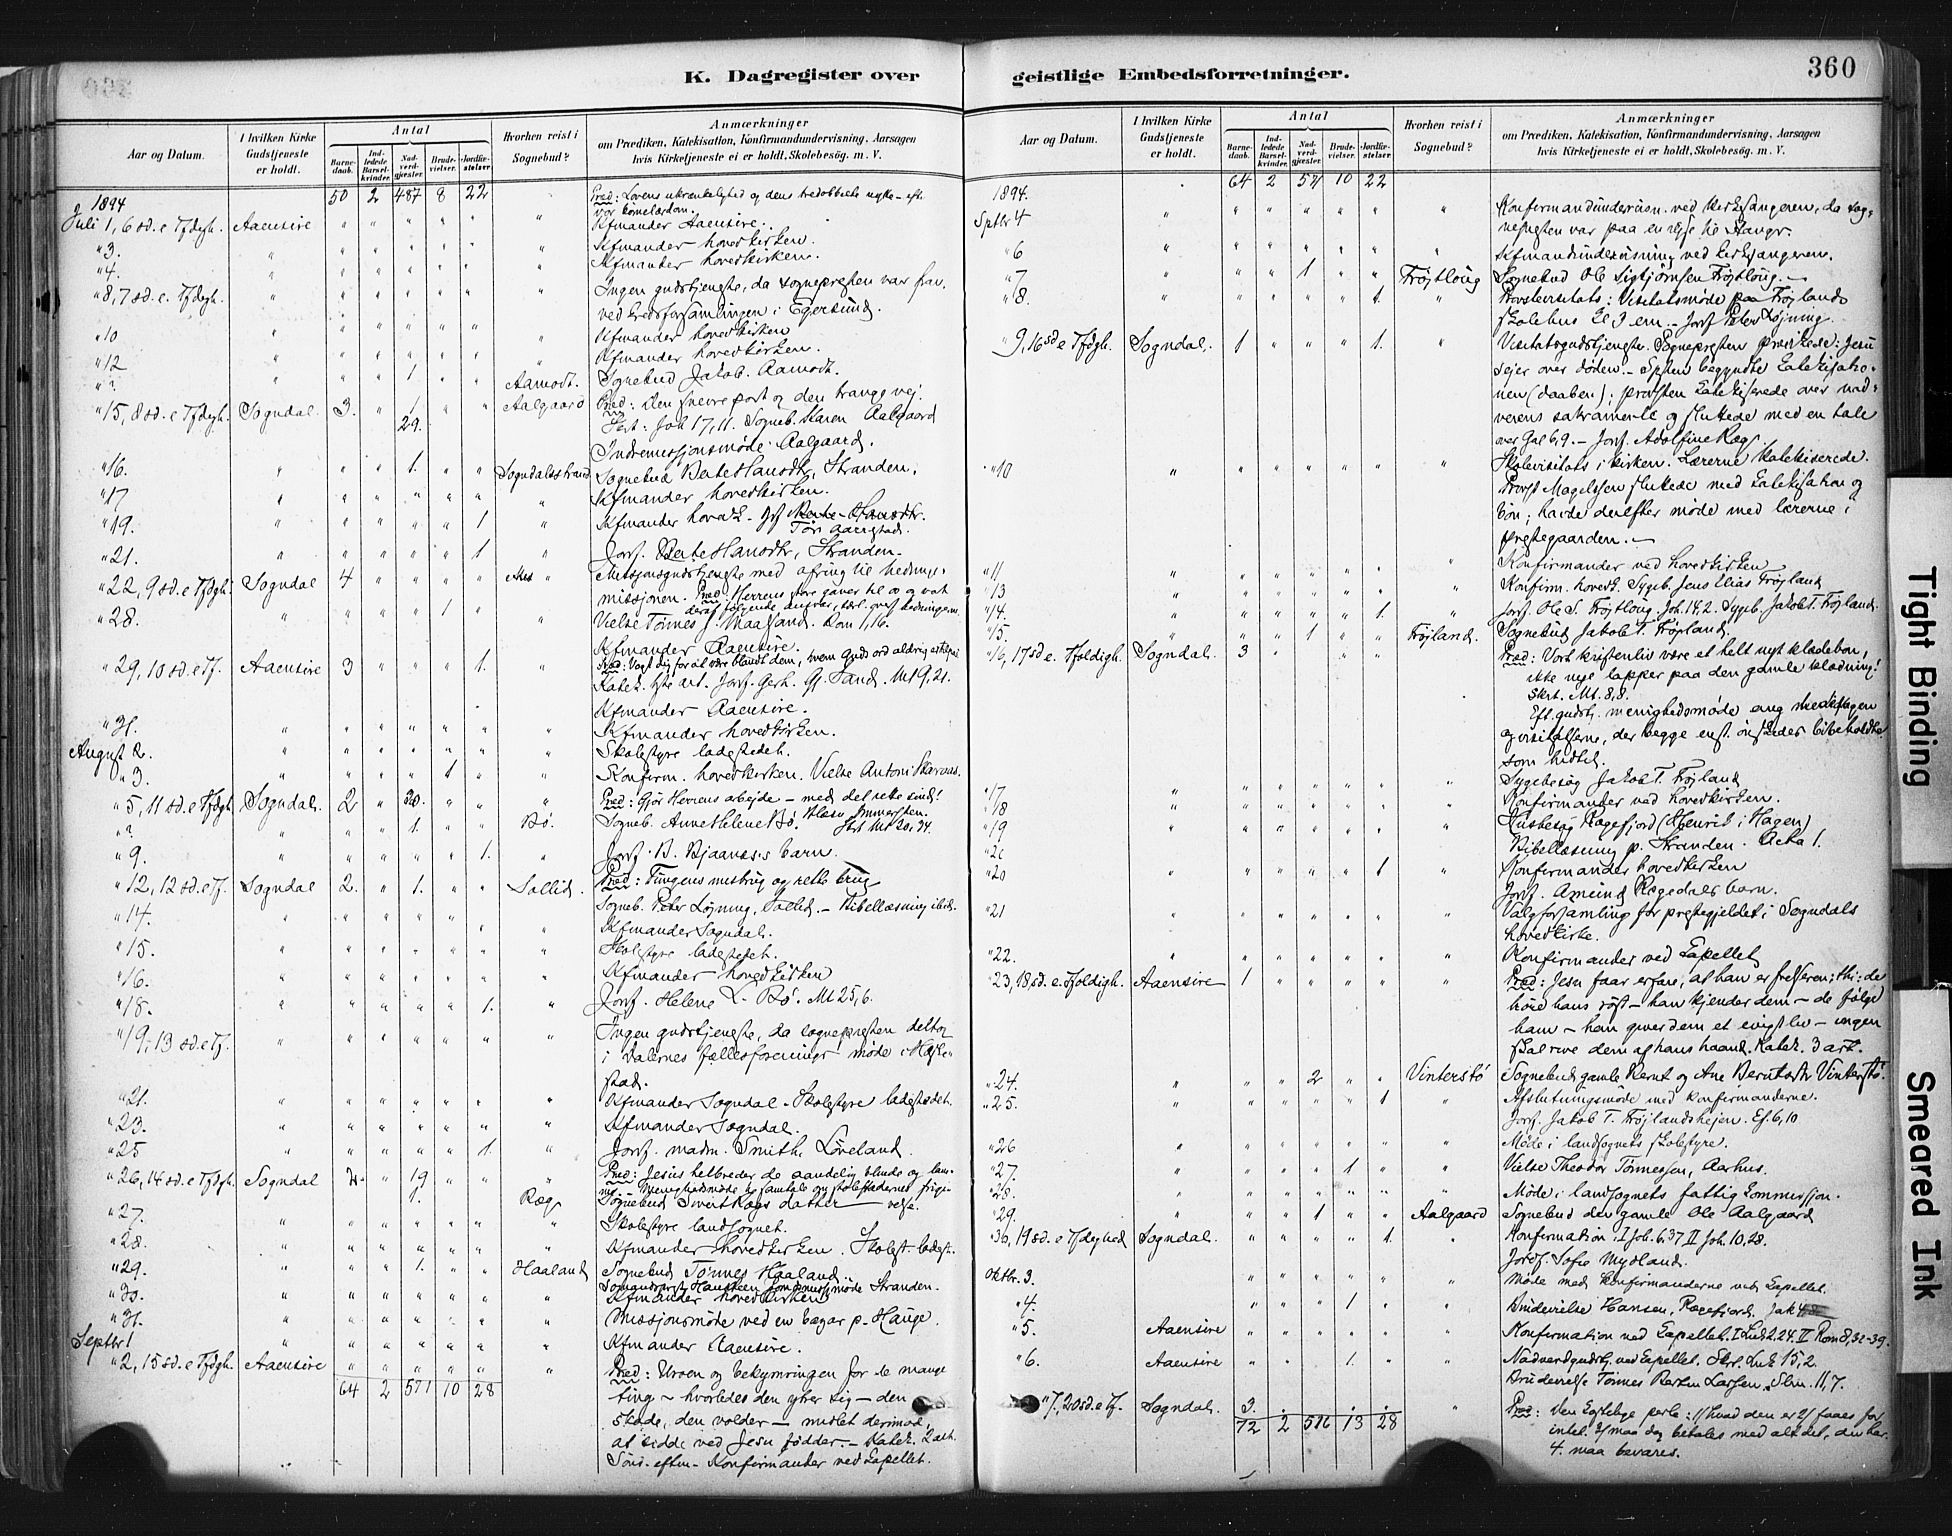 K. Dagregister over
Aar og Datum.
I hvilken Kirke Gudstjeneste er holdt.
Antal
Barnedaab.
Indledede Barselkvinder.
Nadverdgjæster.
Brudevielser.
Jordfæstelser.
Hvorhen reist i Sognebud?
Anmærkninger
om Prædiken, Katekisation, Konfirmandundervisning, Aarsagen
hvis Kirketjeneste ei er holdt, Skolebesøg. m. V.
1894 50 2 487 8 22 Præd: Lovens ukrænkelighed og dens
Juli 1, 6 sd. e Tfdegh. Aaensire Kfmander Aaensire.
" 3. Kfmander hovedkirken.
" 4. Kfmander hovedkirken.
" 8, 7 sd. e. Tfdegh. Ingen gudstjeneste, da sognepresten var frav.
ved kredsforsamlingen i Egersund.
" 10 Kfmander hovedkirken
" 12 Kfmander hovedkirken.
" ? 1 Aamodt. Sognebud Jakob Aamodt.
" 15, 8 sd. e Tfdegh. Sogndal. 3. 1 Aalgaard Præd: Den snevre port og den trange vej.
29. Text: Joh 17, 11. Sogneb. Karen Aalgaard
Indremissjonsmøde Aalgaard.
" 16. 1. Sogndalsstrand Sognebud Berte Hansdtr, Stranden.
" 17 Kfmander hovedkirken.
" 19. 1 Kfmander hovedk.
" 21. 1 Jordf. Berte Hansdtr, Stranden.
" 22, 9 sd. e Tfdgh. Sogndal 4 Missjonsgudstjeneste med ofring til hedninge-
missjonen. Præd: Herrens store gaver til os og vort
" 28. 1 Vielse Tønnes J. Maaland. Rom 1, 16.
Kfmander Aaensire.
" 29, 10 sd. e Tf. Aaensire 3 1.
Kfmander Aaensire.
" 31. Kfmander hovedkirken.
August 2. Skolestyre ladestedet.
" 3. 1 Konfirm. hovedkirken. Vielse Antoni Skaraas.
" 5, 11 sd. e Tfdgh. Sogndal. 2 Præd: Gjør Herrens arbejde – med det rette sind!
" ? 1. Bø. Sogneb. Anne Helene Bø.
" 9. 1. Jordf. B. Bjaanæs's barn.
" 12, 12 sd. e Tf. Sogndal 2. 1. Sollid. Præd: Tungens misbrug og rette brug
Sogneb. Peter Løjning, Sollid. – Bibellæsning ibid.
" 14. Kfmander Sogndal.
" 15. Skolestyre ladestedet.
" 16. Kfmander hovedkirken
" 18. 1. Jordf. Helene L. Bø. Mt 25, 6.
" 19, 13 sd. e Tf. Ingen gudstjeneste, da sognepresten deltog
i Dalernes fællesforenings møde i Heske-
stad.
" 21. Kfmander Sogndal – Skolestyre ladestedet.
" 23. Kfmander Sogndal.
" 25 1. Jordf. madm. Smith, Løveland.
" 26, 14 sd. e Tfdgh. Sogndal 2. 19 Præd: Jesus helbreder de aandelig blinde og lam-
1. Ræg Sognebud Sivert Rægs datter
" 27. Skolestyre landsognet.
" 28. Kfmander hovedkirken. Skolest. ladest.
" 29. 1. Haaland Sognebud Tønnes Haaland
" 30. Kfmander hovedkirken
" 31. Missjonsmøde ved en bazar p. Hauge.
Septbr 1 Kfmander Aaensire.
" 2, 15 sd. e. Tfdgh. Aaensire Præd: Uroen og bekymringen for de mange
64 2 571 10 28 ting – hvorledes den ytrer sig – den
skade, den volder – midlet derimod,
at sidde ved Jesu fødder. – Katek. 2 art.
Sønd. eftm. Konfirmander ved kapellet.
geistlige Embedsforretninger.
360
Aar og Datum.
I hvilken Kirke Gudstjeneste er holdt.
Antal
Barnedaab.
Indledede Barselkvinder.
Nadverdgjæster.
Brudevielser.
Jordfæstelser.
Hvorhen reist i Sognebud?
Anmærkninger
om Prædiken, Katekisation, Konfirmandundervisning, Aarsagen
hvis Kirketjeneste ei er holdt, Skolebesøg. m. V.
1894. 64 2 57 10 22
Septbr 4 Konfirmandundervisn. ved kirkesangeren, da sog-
nepresten var paa en rejse til Stavgr.
" 6 Kfmandundervisning ved kirkesangeren.
" 7 1 Frøjtloug Sognebud Ole Sigbjørnsen Frøjtloug. –
" 8. 1. Provstevisitats: Visitatsmøde paa Frøjlands
skolehus kl 3 em. – Jordf Peter Løjning.
9, 16 sd e Tfdgh. Sogndal. 1 1. Visitatsgudstjeneste. Sognepresten prædikede: Jesu
sejer over døden. – Spten begyndte katekisatio-
nen (daaben); provsten katekiserede over nad-
verens sakramente og sluttede med en tale
over Gal 6, 9. – Jordf. Adolfine Ræg.
" 10 Skolevisitats i kirken. Lærerne katekiserede.
Provst Magelssen sluttede med katekisation og
bøn; havde derefter møde med lærerne i
prestegaarden. –
" 11 Konfirmander ved hovedkirken
" 13 Konfirm. hovedk. Sygeb. Jens Elias Frøjland
" 14. 1. Jordf. Ole S. Frøjtloug. Joh. 14, 2. Sygeb. Jakob T. Frøjland.
" 15. 1 Frøjland. Sognebud Jakob T. Frøjland
" 16, 17 sd e. Tfoldigh. Sogndal. 3 Præd: Vort kristenliv være et helt nyt klædebon,
ikke nye lapper paa den gamle klædning!
Skrt. Mt. 8, 8.
Eft. gudstj. menighedsmøde ang.
som hidtil.
Sygebesøg Jakob T. Frøjland
" 17
" 18 Konfirmander ved hovedkirken.
" 19 Husbesøg Rægefjord (Henrik i Hagen)
Bibellæsning p. Stranden. Acta 1.
" 20 1 Konfirmander hovedkirken
Jordf. Amund Rægedals barn.
" 21 Valgforsamling for prestegjeldet i Sogndals
hovedkirke.
" 22. Konfirmander ved kapellet
" 23, 18 sd. e. Tfoldigh. Aaensire 1 Præd: Jesu faar erfare, at han er frelseren; thi: de
høre hans røst – han kjender dem – de følge
ham – han giver dem et evigt liv – ingen
skal rive dem af hans haand. Katek. 3 art.
" 24. 2 Vinterstø Sognebud gamle Bernt og Ane Berntsdtr Vinterstø.
" 25. 1 Afslutningsmøde med konfirmanderne.
Jordf. Jakob T. Frøjlandshejen. Ef. 6, 10
" 26 Møde i landsognets skolestyre.
" 27. 1 Vielse Theodor Tønnessen, Aarhus.
" 28. Møde i landsognets fattigkommissjon.
" 29. 1 Aalgaard Sognebud den gamle Ole Aalgaard
" 30, 19 sd. e Tfdighed Sogndal. 1. Konfirmation. I Joh. 6, 37 II Joh. 10, 28.
Jordf. Sofie Mydland.
Oktbr. 3. Møde med konfirmanderne ved kapellet.
" 4. 1 Brudevielse Hansen, Rægefjord.
" 5. Aaensire Konfirmation ved kapellet. I Luk 2, 24. II Rom 8, 32–39.
" 6. Aaensire 1. Nadverdgudstj. ved kapellet. Skr. Luk 15, 2.
Brudevielse Tønnes Larsen.
" 7, 20 sd. e Tf. Sogndal. 3. Præd: Den kostelige perle: 1/ hvad den er 2/ faaes for
72 2 576 13 28 intet. 3/ maa dog betales med alt det, du har.
4. maa bevares.
Tight Binding
Smeared Ink